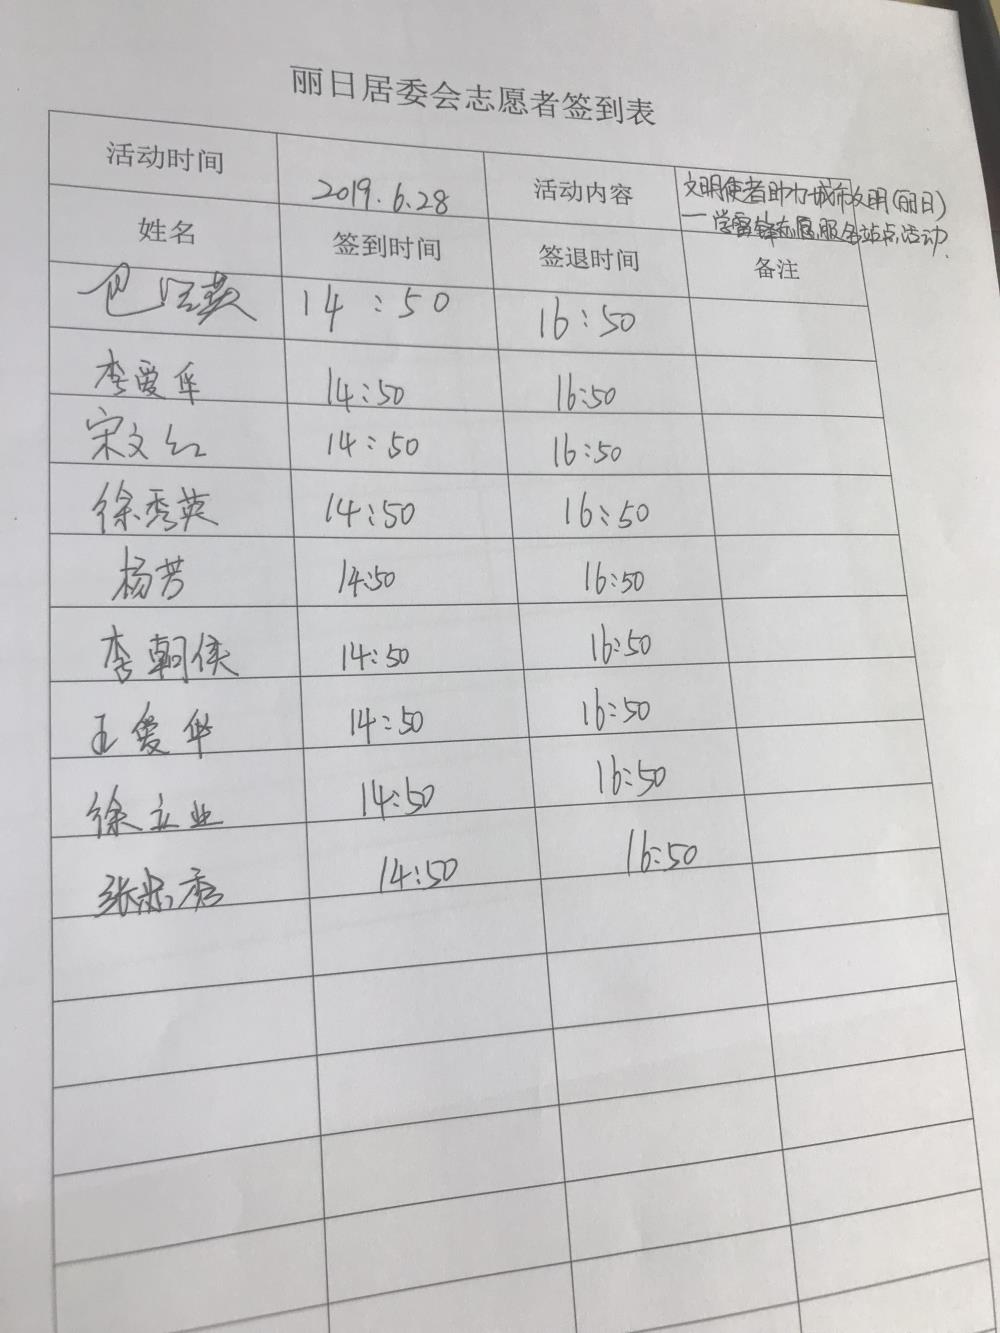 丽日居委会志愿者签到表
活动时间 2019.6.28 活动内容 文明使者助力城市文明(丽日)
一学雷锋志愿服务站点活动.
姓名 签到时间 签退时间 备注
14:50 16:50
李爱华 14:50 16:50
宋文红 14:50 16:50
徐秀英 14:50 16:50
杨芳 14:50 16:50
李朝侠 14:50 16:50
王爱华 14:50 16:50
徐立业 14:50 16:50
张忠秀 14:50 16:50